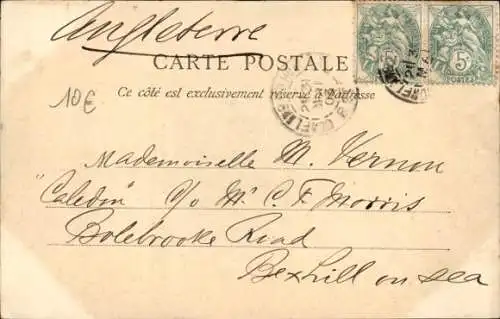 Angleterre
CARTE POSTALE
10€
Ce côté est exclusivement réservé à l'adresse
5c
POSTES
Mademoiselle M. Vernon
"Caledin" c/o Mr C. F. Morris
Bolebrooke Road
Bexhill on sea